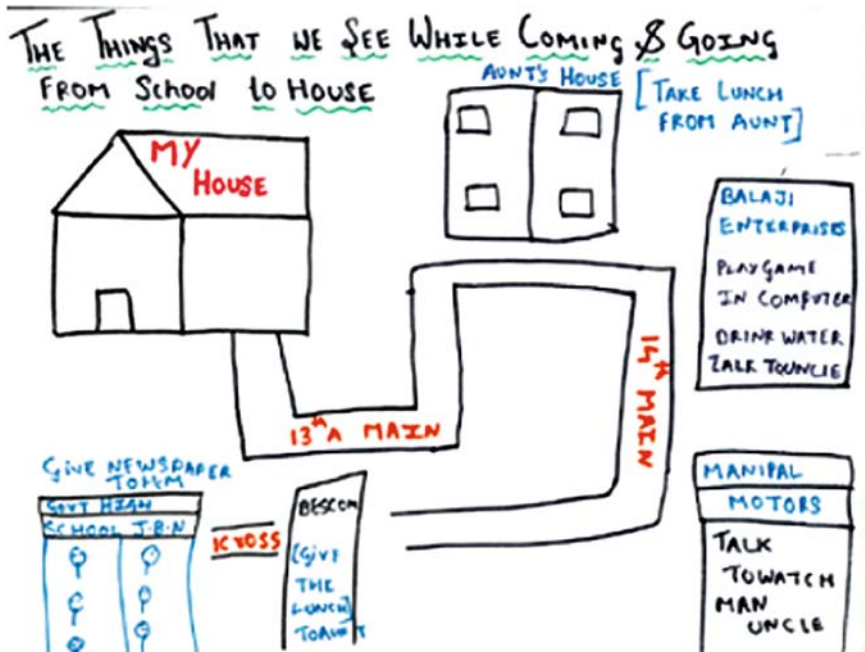 THE THINGS THAT WE SEE WHILE COMING & GOING
FROM SCHOOL to HOUSE
AUNT'S HOUSE
[TAKE LUNCH
FROM AUNT]
MY
HOUSE
BALAJI
ENTERPRISES
PLAY GAME
IN COMPUTER
DRINK WATER
TALK TOUNCLE
14th MAIN
13th A MAIN
GIVE NEWSPAPER
TO HM
GOVT HIGH
SCHOOL J.B.N
CROSS
BESCOM
[GIVE
THE
LUNCH]
TO AUNT
MANIPAL
MOTORS
TALK
TO WATCH
MAN
UNCLE